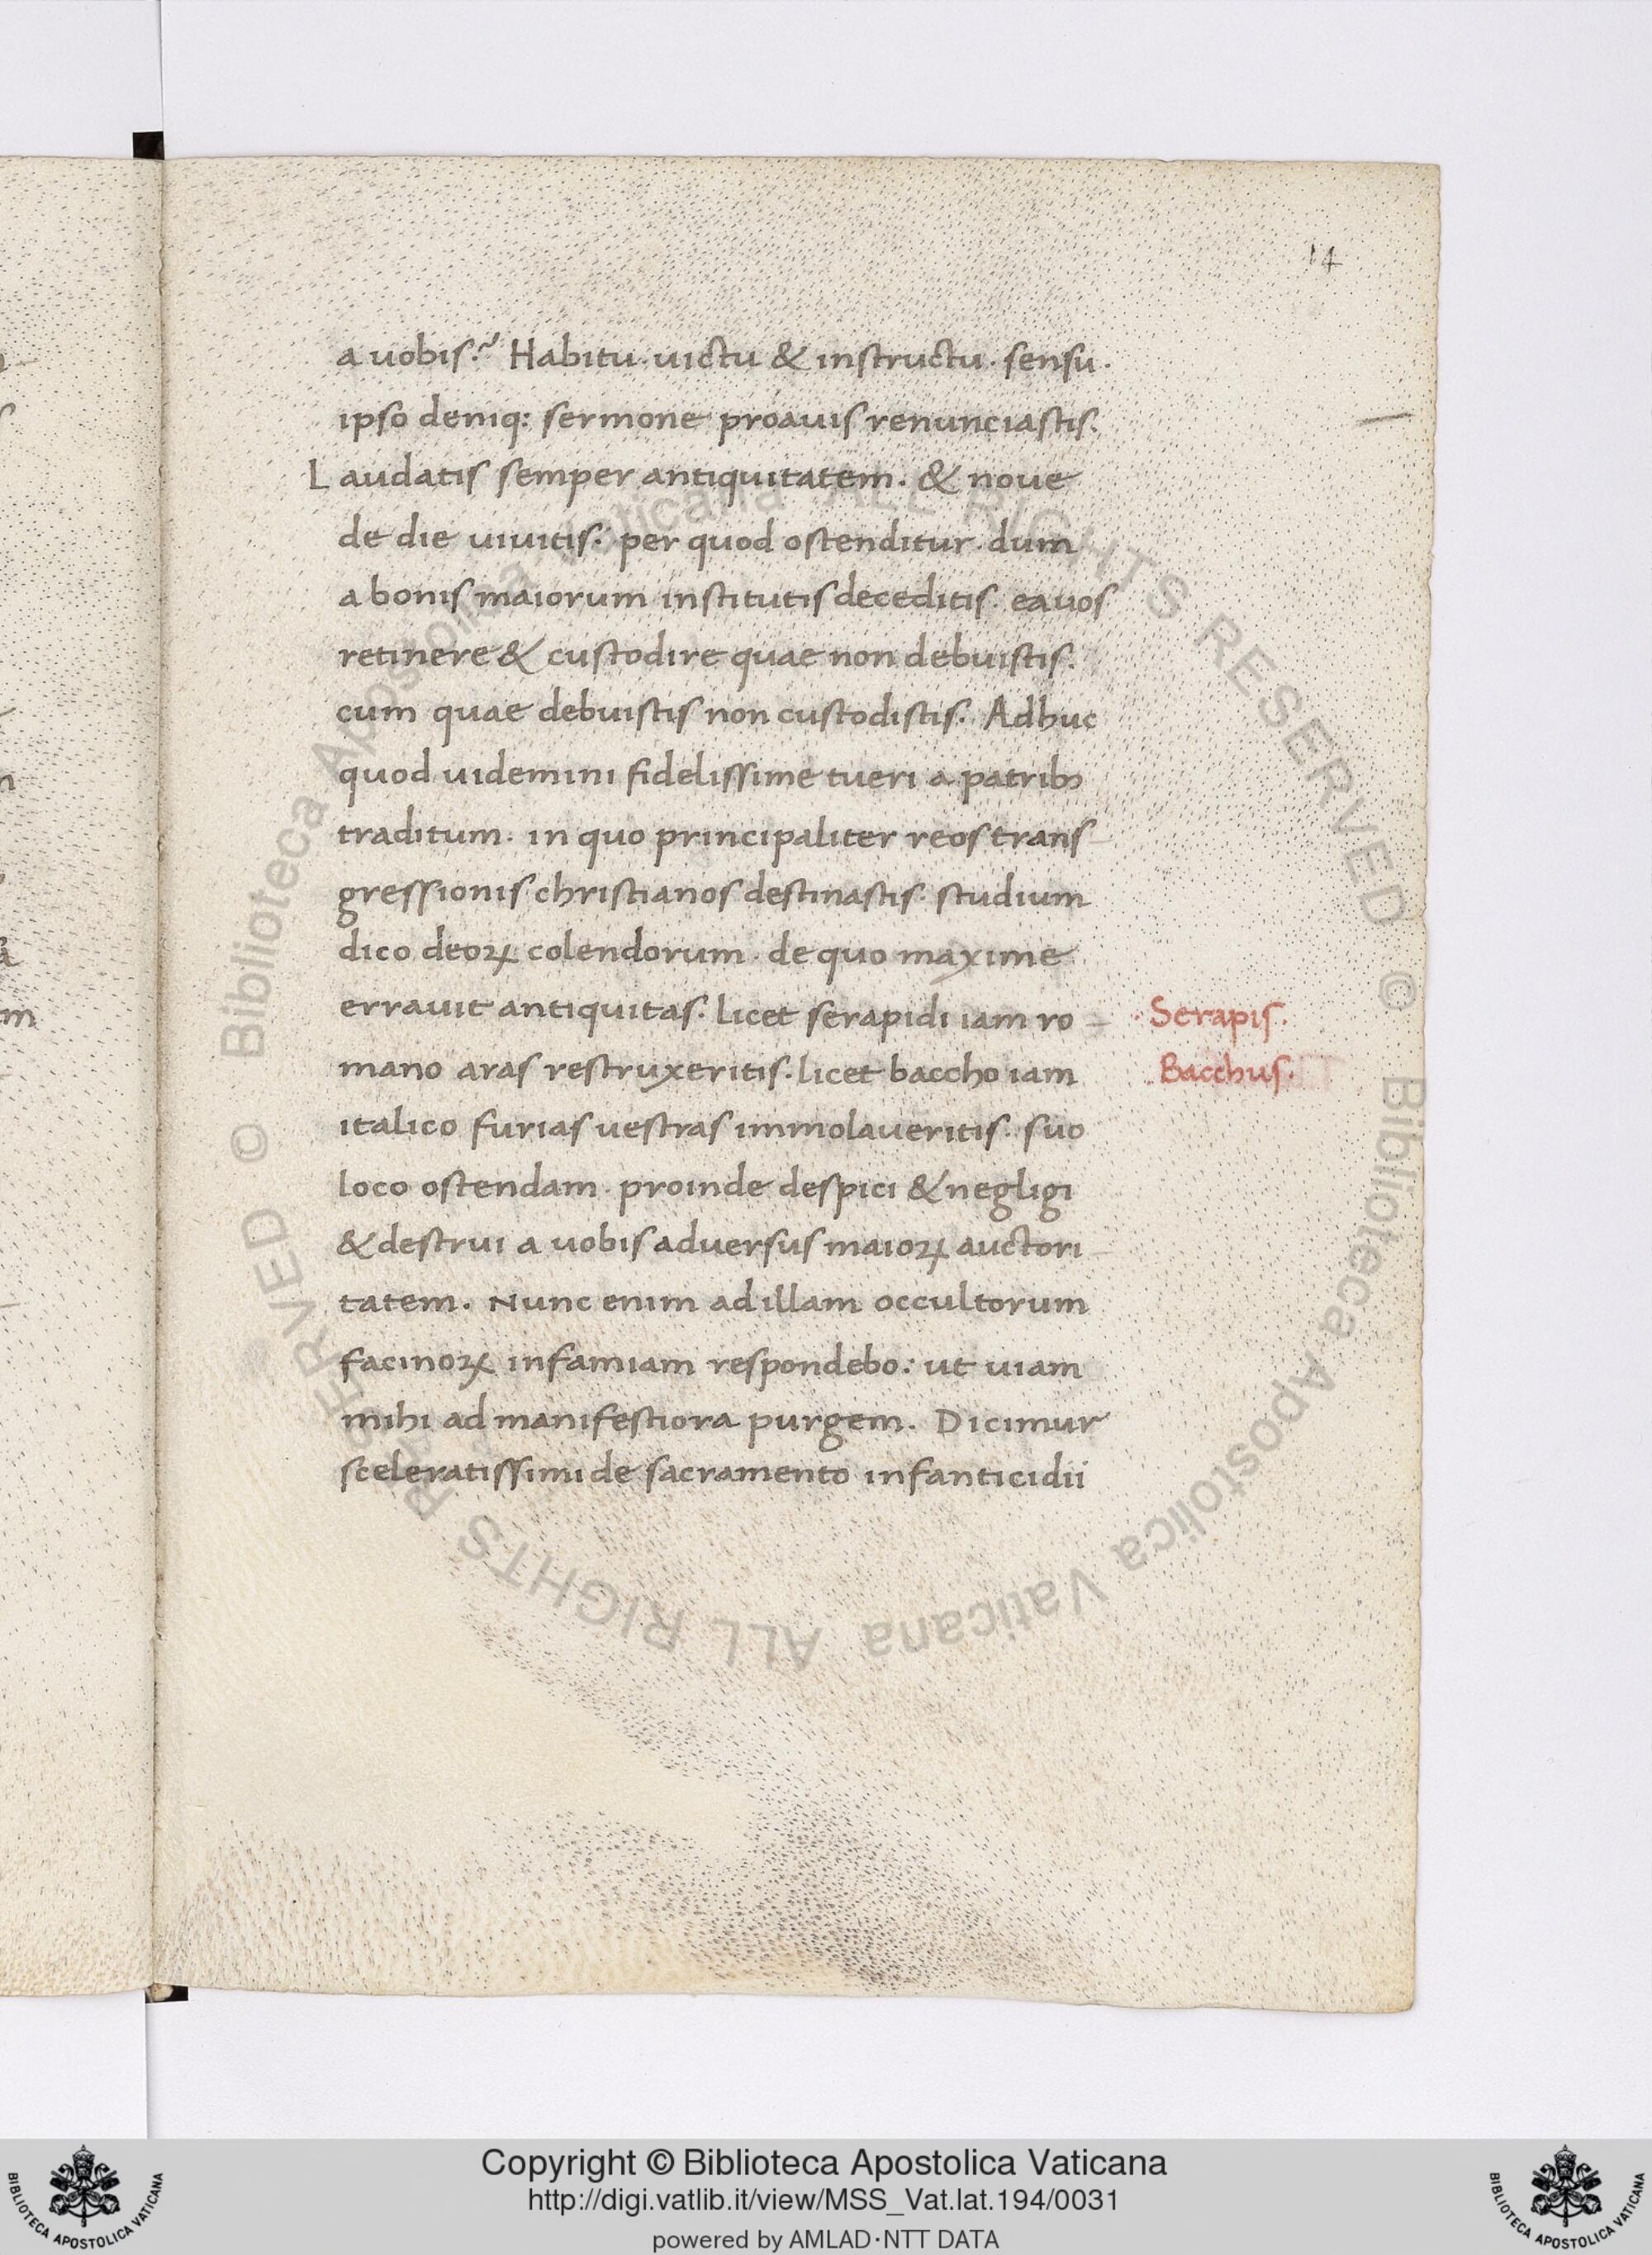 14
a uobis? Habitu. uictu & instructu. sensu.
ipso deniq: sermone proauis renunciastis.
Laudatis semper antiquitatem. & noue
de die uiuitis. per quod ostenditur. dum
a bonis maiorum institutis deceditis. ea uos
retinere & custodire quae non debuistis.
cum quae debuistis non custodistis. Adhuc
quod uidemini fidelissime tueri a patribꝫ
traditum. in quo principaliter reos trans-
gressionis christianos destinastis. studium
dico deoꝝ colendorum. de quo maxime
errauit antiquitas. licet serapidi iam ro-
mano aras restruxeritis. licet baccho iam
italico furias uestras immolaueritis. suo
loco ostendam. proinde despici & negligi
& destrui a uobis aduersus maioꝝ auctori-
tatem. Nunc enim ad illam occultorum
facinoꝝ infamiam respondebo: ut uiam
mihi ad manifestiora purgem. Dicimur
sceleratissimi de sacramento infanticidii
·Serapis.
Bacchus.
© Biblioteca Apostolica Vaticana ALL RIGHTS RESERVED © Biblioteca Apostolica Vaticana ALL RIGHTS RESERVED
Copyright © Biblioteca Apostolica Vaticana
http://digi.vatlib.it/view/MSS_Vat.lat.194/0031
powered by AMLAD·NTT DATA
BIBLIOTECA APOSTOLICA VATICANA
BIBLIOTECA APOSTOLICA VATICANA